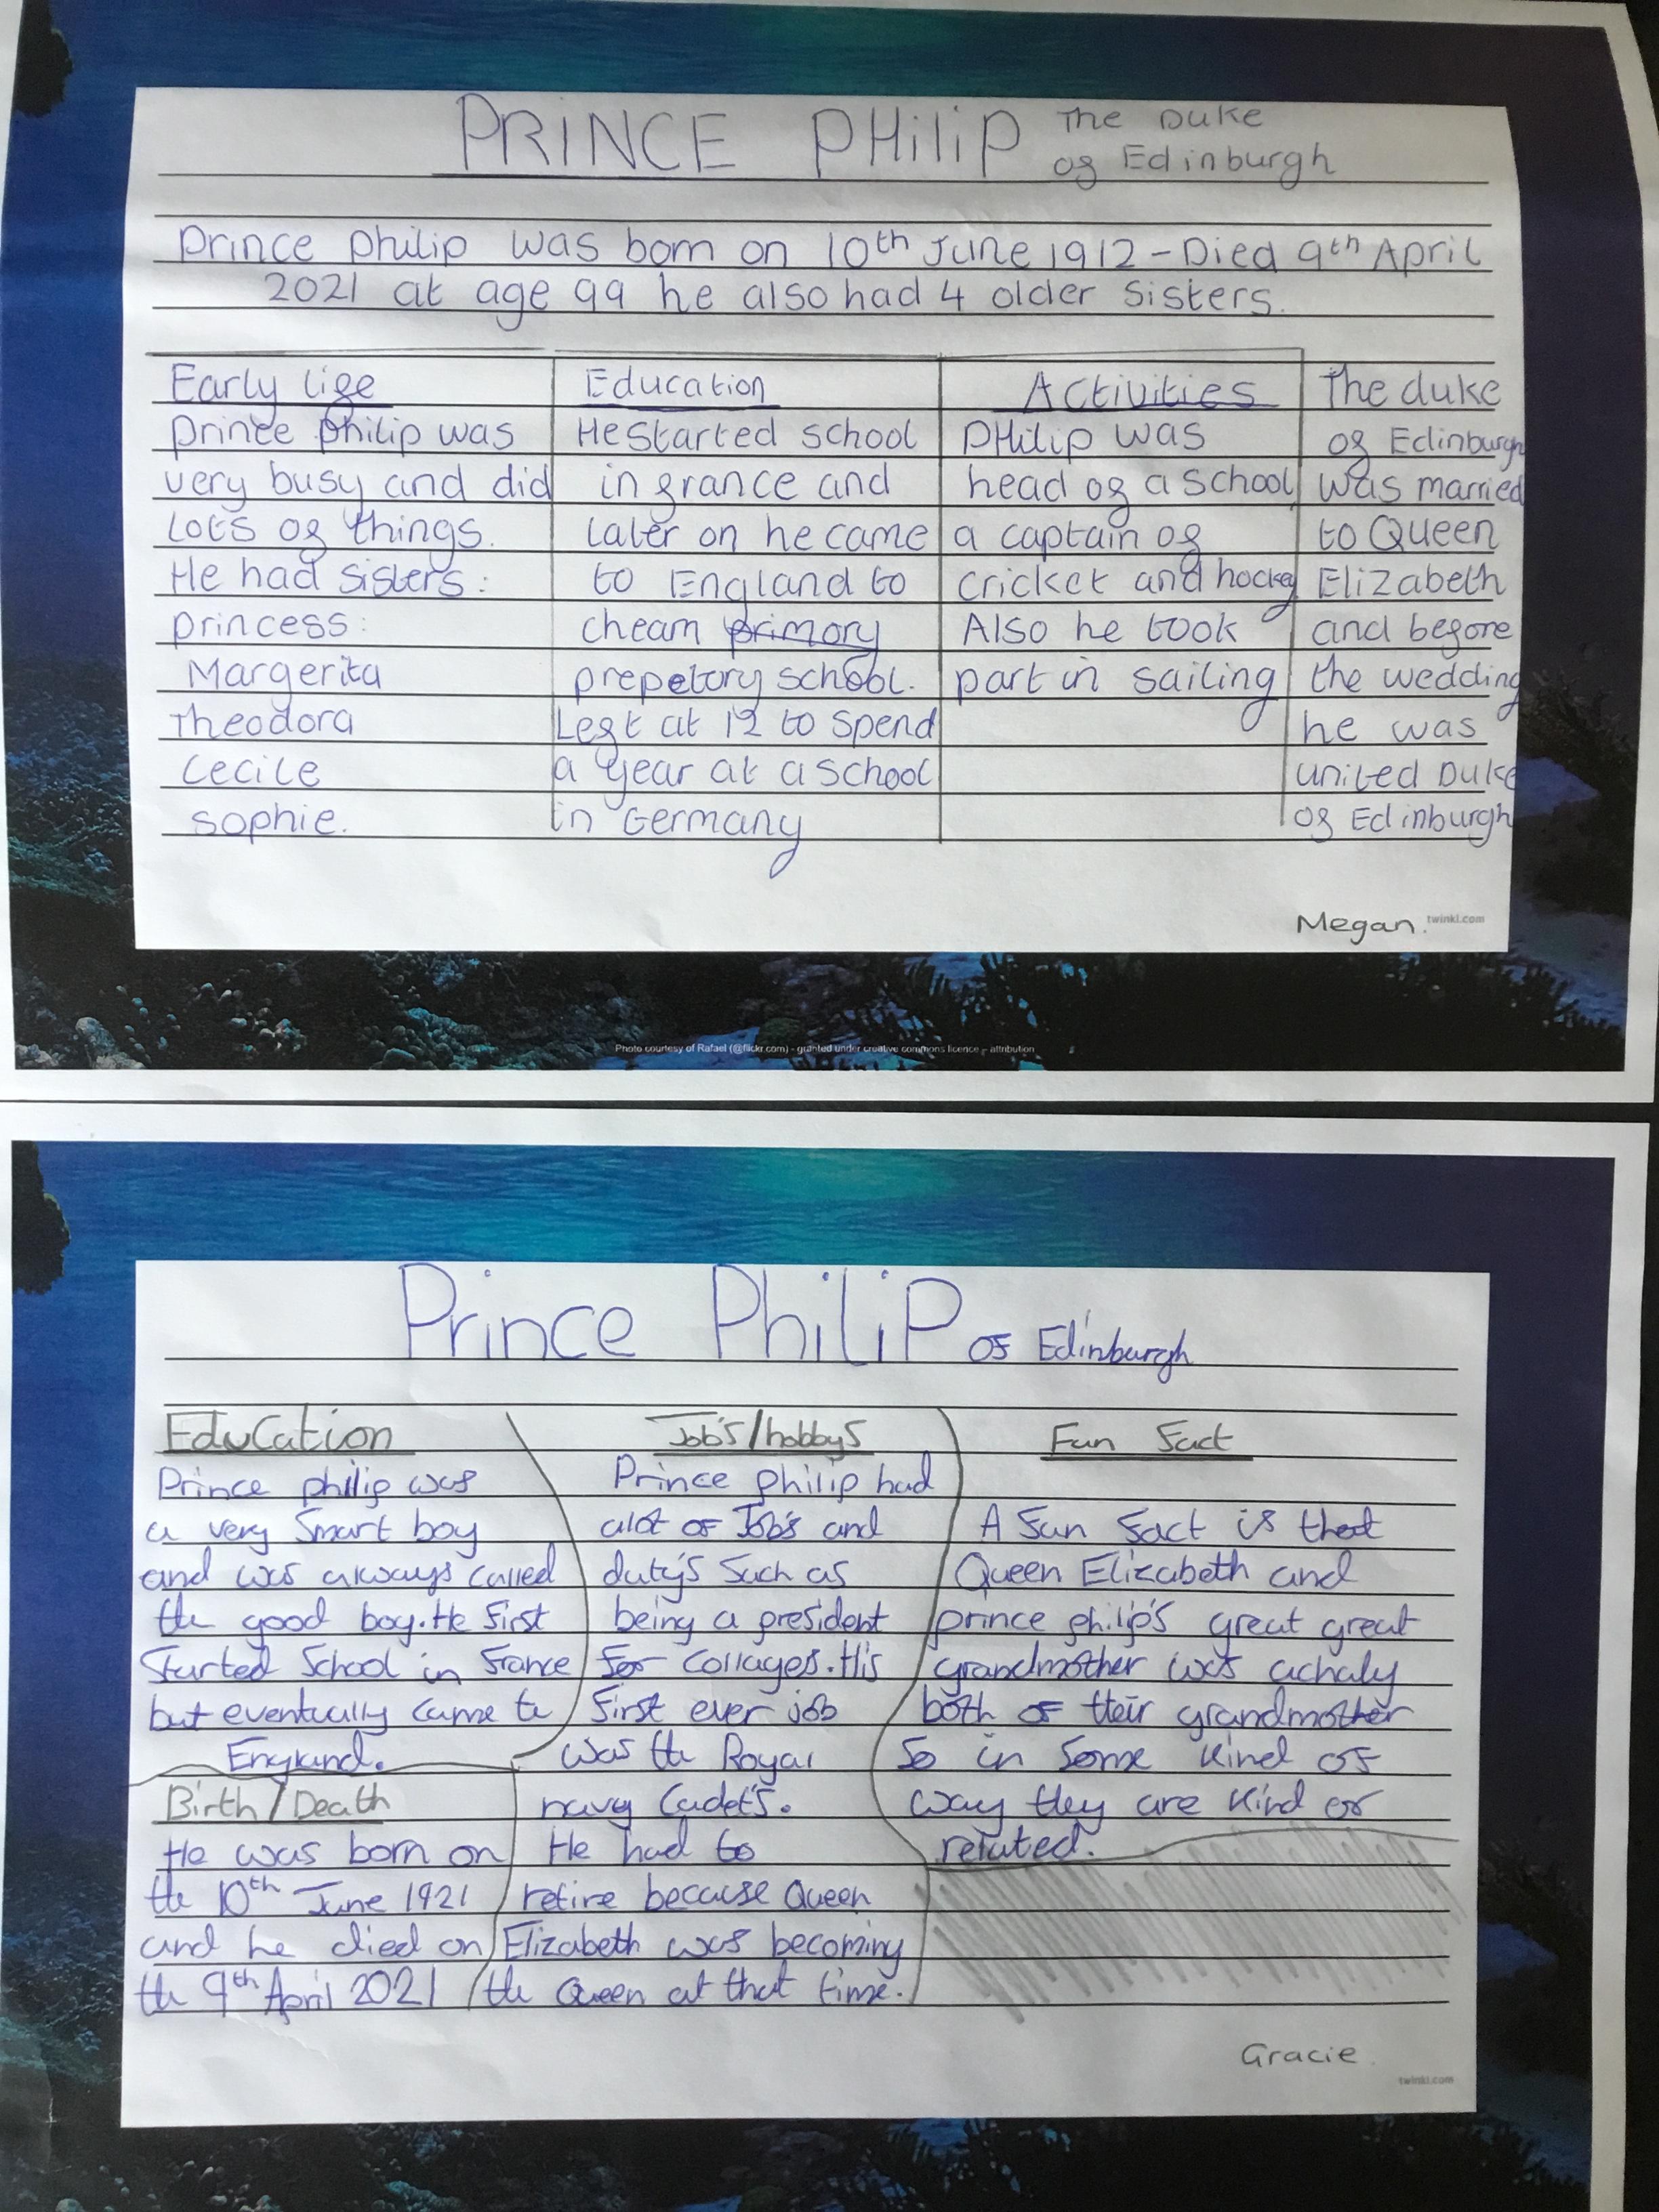 PRINCE PHiliP The Duke
of Edinburgh
prince philip was born on 10th June 1912 - Died 9th April
2021 at age 99 he also had 4 older sisters.
Early life
prince philip was
very busy and did
lots of things.
He had sisters:
princess:
Margerita
Theodora
Cecile
sophie.
Education
He started school
in france and
later on he came
to England to
cheam primory
prepetory school.
Left at 12 to spend
a year at a school
in Germany
Activities
PHilip was
head of a school
a captain of
cricket and hockey
Also he took
part in sailing
The duke
of Edinburgh
was married
to Queen
Elizabeth
and before
the wedding
he was
united Duke
of Edinburgh
Megan.
twinkl.com
Photo courtesy of Rafael (@flickr.com) - granted under creative commons licence - attribution
Prince PhiliP of Edinburgh
EduCation
Prince philip was
a very Smart boy
and was always called
the good boy. He first
Started School in france
but eventually came to
England.
Birth / Death
He was born on
the 10th June 1921
and he died on
the 9th April 2021
Job's/hobbys
Prince philip had
alot of Job's and
duty's Such as
being a president
for Collages. His
first ever job
was the Royal
navy Cadet's.
He had to
retire because Queen
Elizabeth was becoming
the Queen at that time.
Fun fact
A fun fact is that
Queen Elizabeth and
prince philip's great great
grandmother was achaly
both of their grandmother
So in Some Kind of
way they are Kind of
related.
Gracie.
twinkl.com